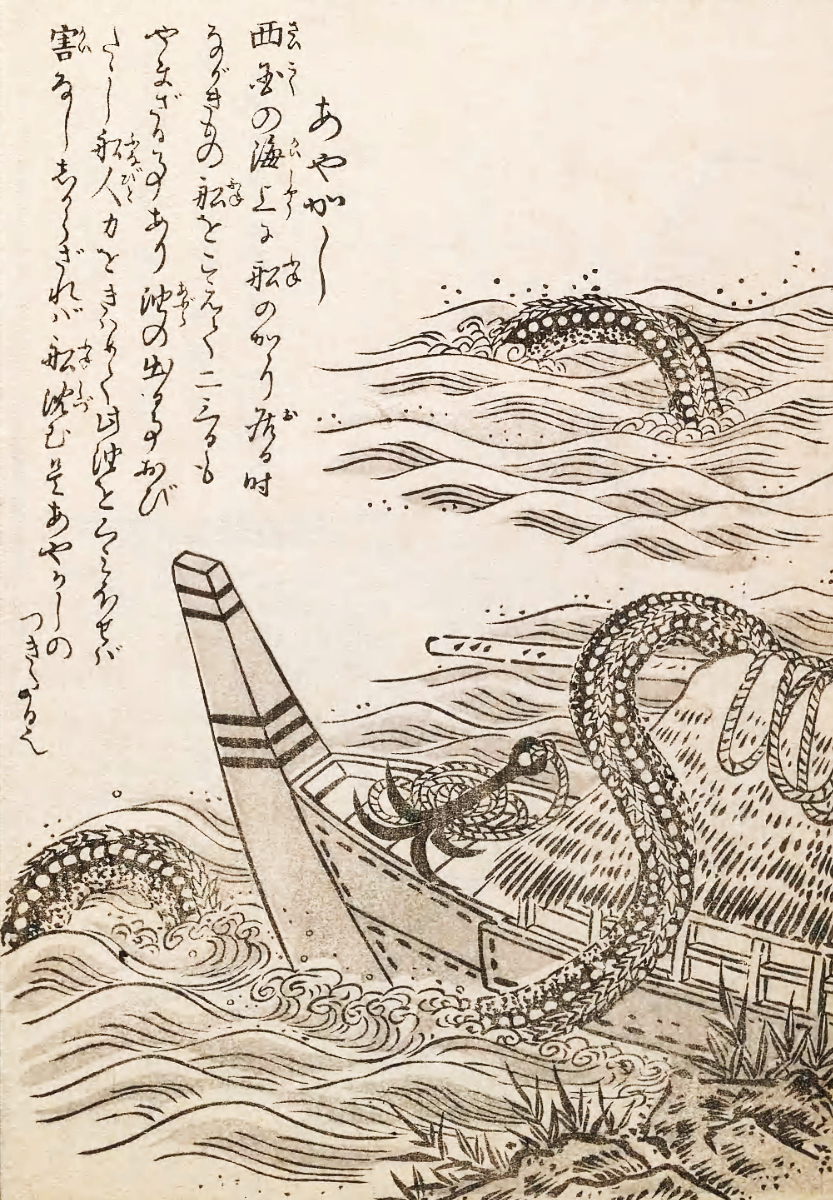 あやかし
西国の海上に船のかゝり居る時
ながきもの船をこえて二三日も
やまざる事あり油の出る事おび
たゝし船人力をきはめて此油をくみほせば
害なししからざれば船沈む是あやかしの
つきたる也